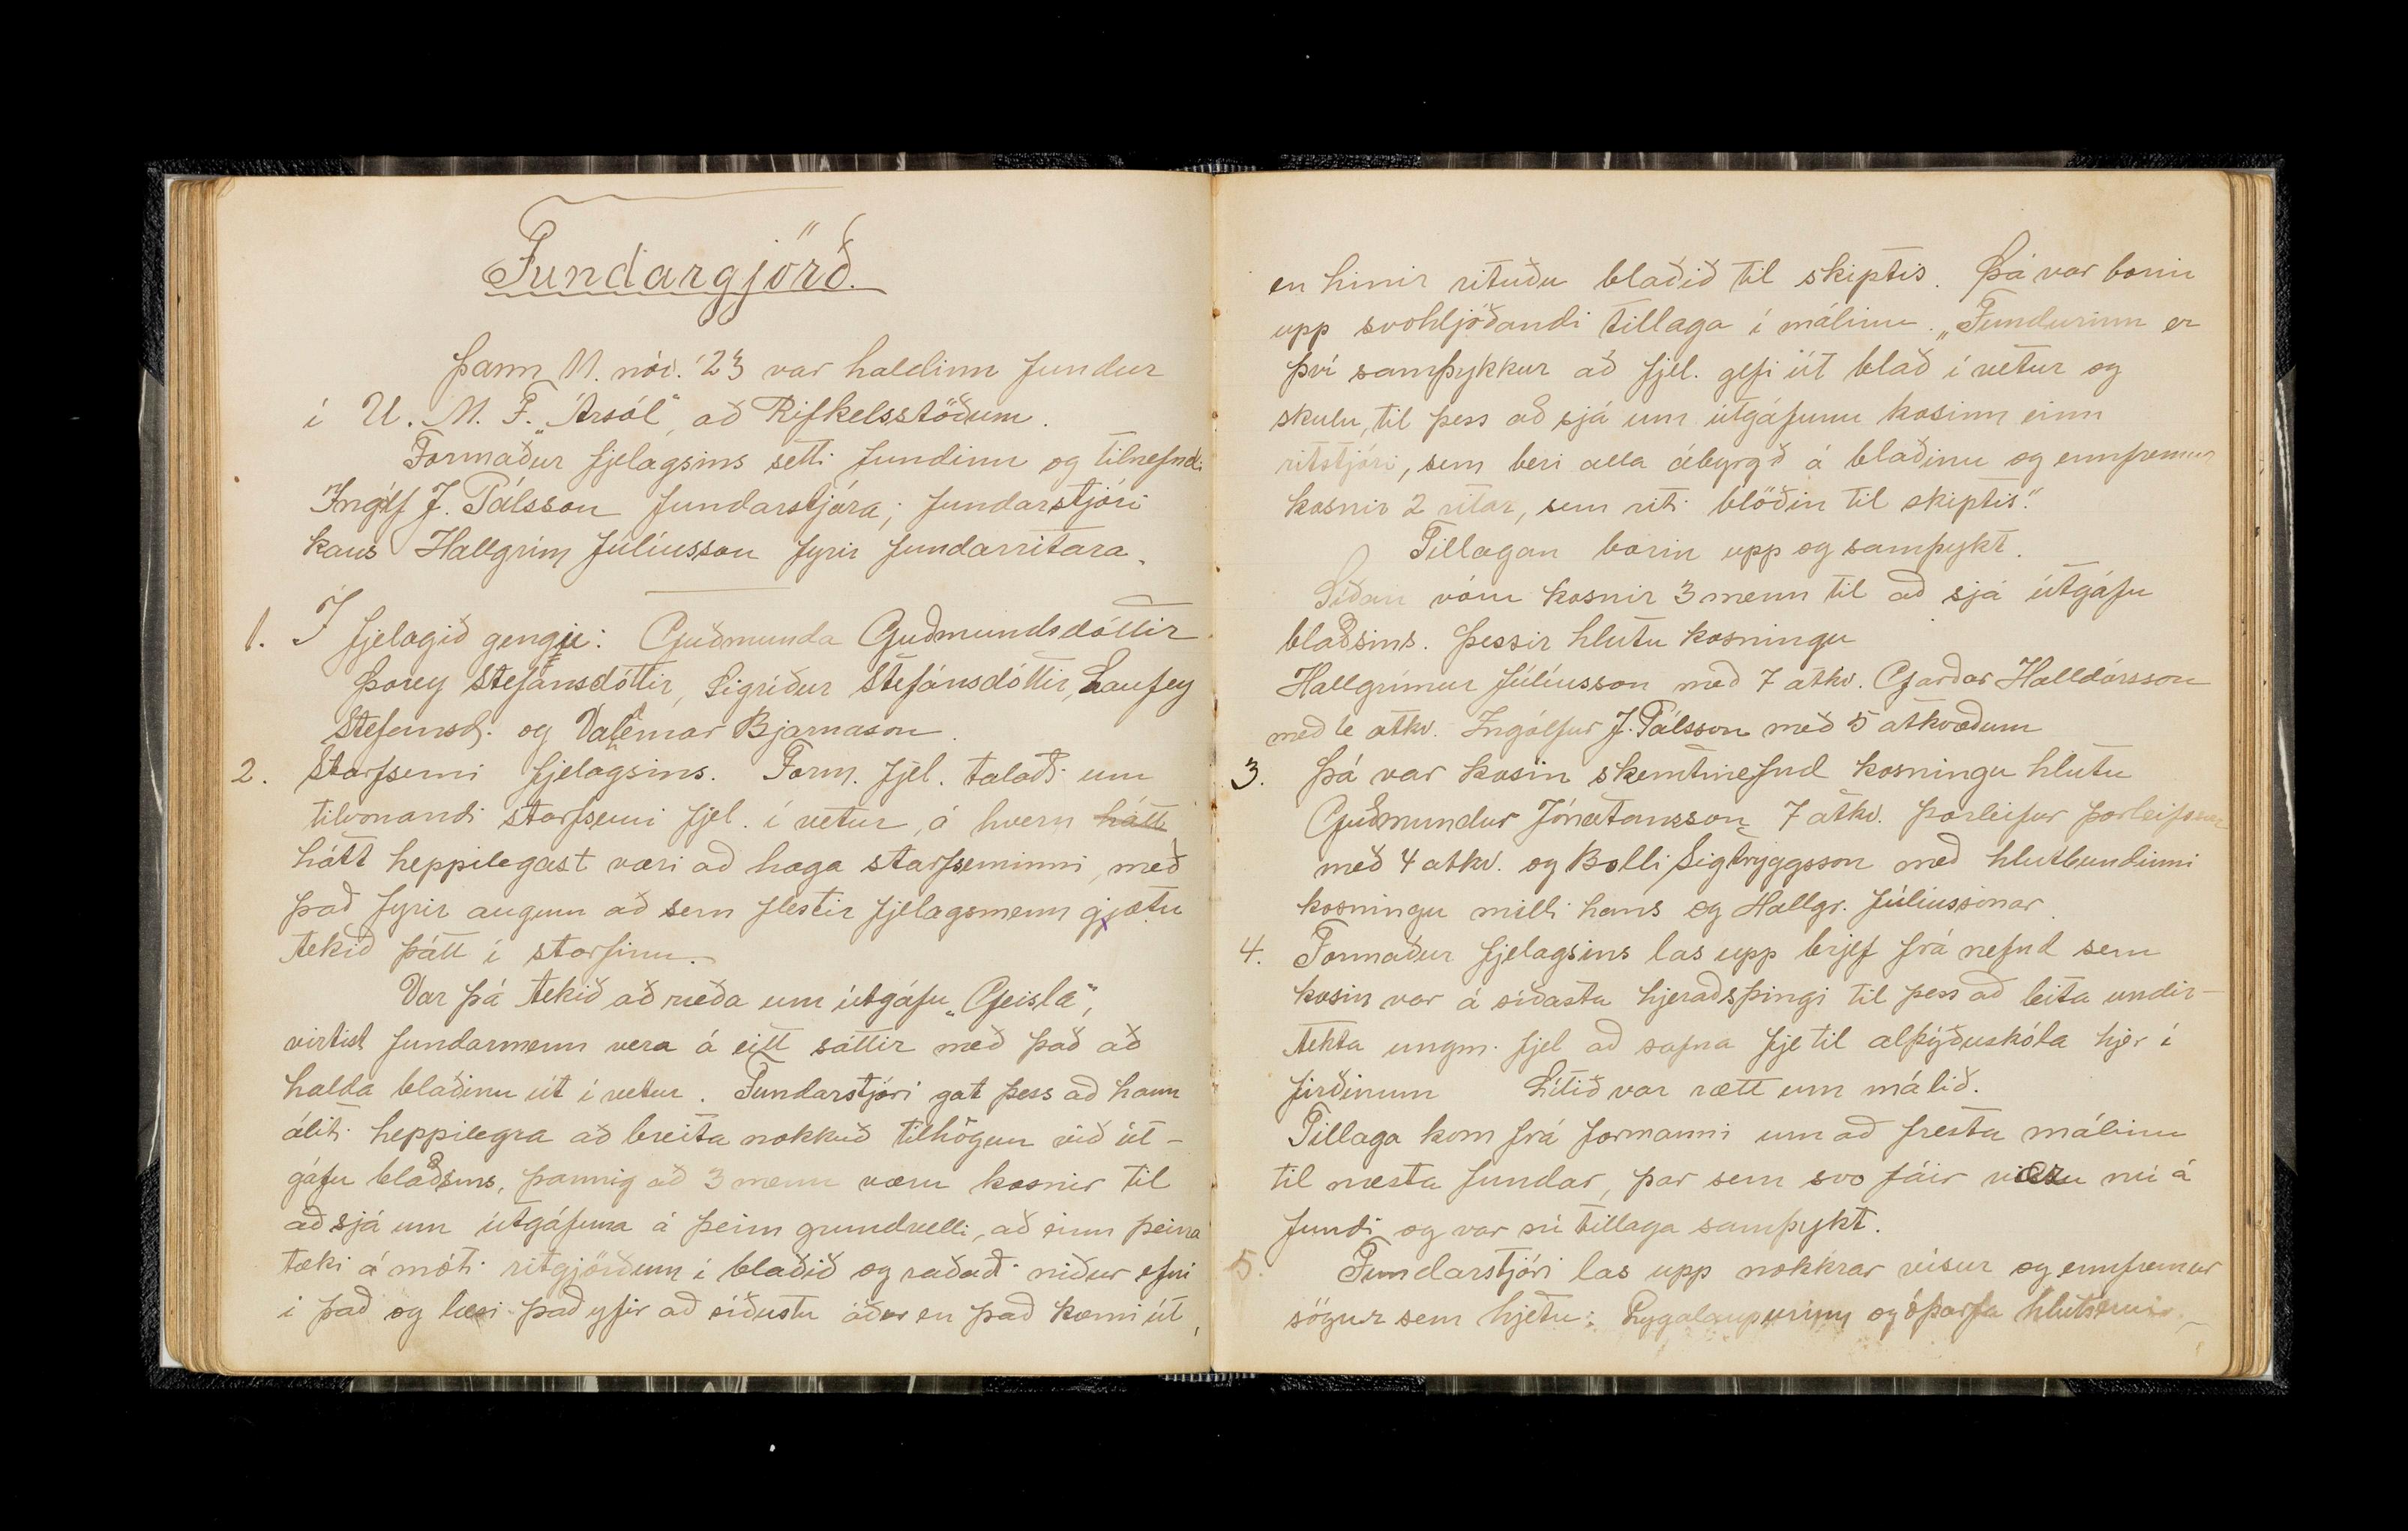 Fundargjörð.
Þann 11. nóv. '23 var haldinn fundur
í U. M. F. „Ársól" að Rifkelsstöðum.
Formaður fjelagsins setti fundinn og tilnefndi
Ingólf J. Pálsson fundarstjóra; fundarstjóri
kaus Hallgrím Júlíusson fyrir fundarritara.
1. Í fjelagið gengu: Guðmunda Guðmundsdóttir
Þórey Stefánsdóttir, Sigríður Stefánsdóttir, Laufey
Stefansd. og Valemar Bjarnason.
2. Starfsemi fjelagsins. Form. fjel. talaði um
tilvonandi starfsemi fjel. í vetur, á hvern hátt
hátt heppilegast væri að haga starfseminni, með
það fyrir augum að sem flestir fjelagsmenn gjætu
tekið þátt í starfinu.
Var þá tekið að ræða um útgáfu „Geisla",
virtist fundarmenn vera á eitt sáttir með það að
halda blaðinu út í vetur. Fundarstjóri gat þess að hann
áliti heppilegra að breita nokkuð tilhögun við út-
gáfu blaðsins, þannig að 3 menn væru kosnir til
að sjá um útgáfuna á þeim grundvelli, að einn þeirra
tæki á móti ritgjörðum í blaðið og raðaði niður efni
í það og læsi það yfir að síðustu áður en það kæmi út,
en hinir rituðu blaðið til skiptis. Þá var borin
upp svohljóðandi tillaga í málinu. „Fundurinn er
því samþykkur að fjel. gefi út blað í vetur og
skulu, til þess að sjá um útgáfunu kosinn einn
ritstjóri, sem beri alla ábyrgð á blaðinu og ennfremur
kosnir 2 ritar, sem riti blöðin til skiptis."
Tillagan borin upp og samþykt.
Síðan vóru kosnir 3 menn til að sjá útgáfu
blaðsins. Þessir hlutu kosningu
Hallgrímur Júlíusson með 7 atkv. Garðar Halldórsson
með 6 atkv. Ingólfur J. Pálsson með 5 atkvæðum
3. Þá var kosin skemtinefnd kosningu hlutu
Guðmundur Jónatansson 7 atkv. Þorleifur Þorleifsson
með 4 atkv. og Bolli Sigtryggsson með hlutbundinni
kosningu milli hans og Hallgr. Júlíussonar.
4. Formaður fjelagsins las upp brjef frá nefnd sem
kosin var á síðasta hjeraðsþingi til þess að leita undir-
tekta ungm. fjel að safna fje til alþýðuskóla hjer í
firðinum Lítið var rætt um málið.
Tillaga kom frá formanni um að fresta málinu
til næsta fundar, þar sem svo fáir væru nú á
fundi og var sú tillaga samþykt.
5. Fundarstjóri las upp nokkrar vísur og ennfremur
sögur sem hjetu: Lygalaupurinn og óþarfa hlutsemi.